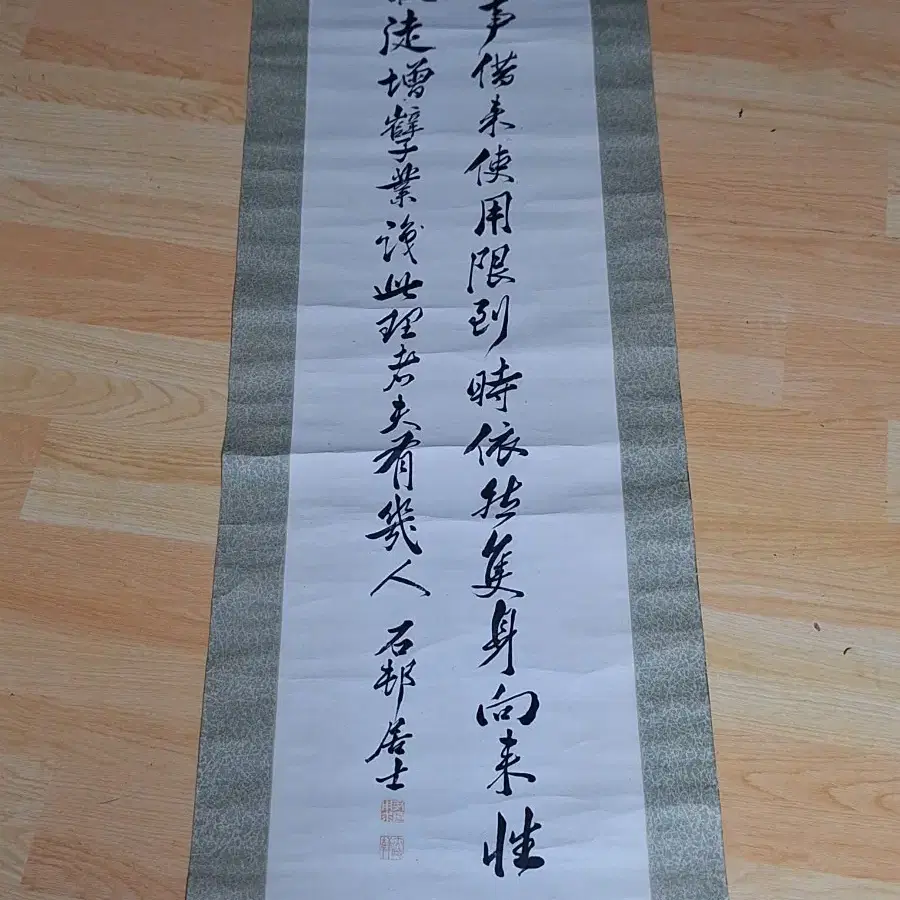 事借来使用限到時依然隻身向来性
徒增孽業識此理者夫有幾人 石邨居士